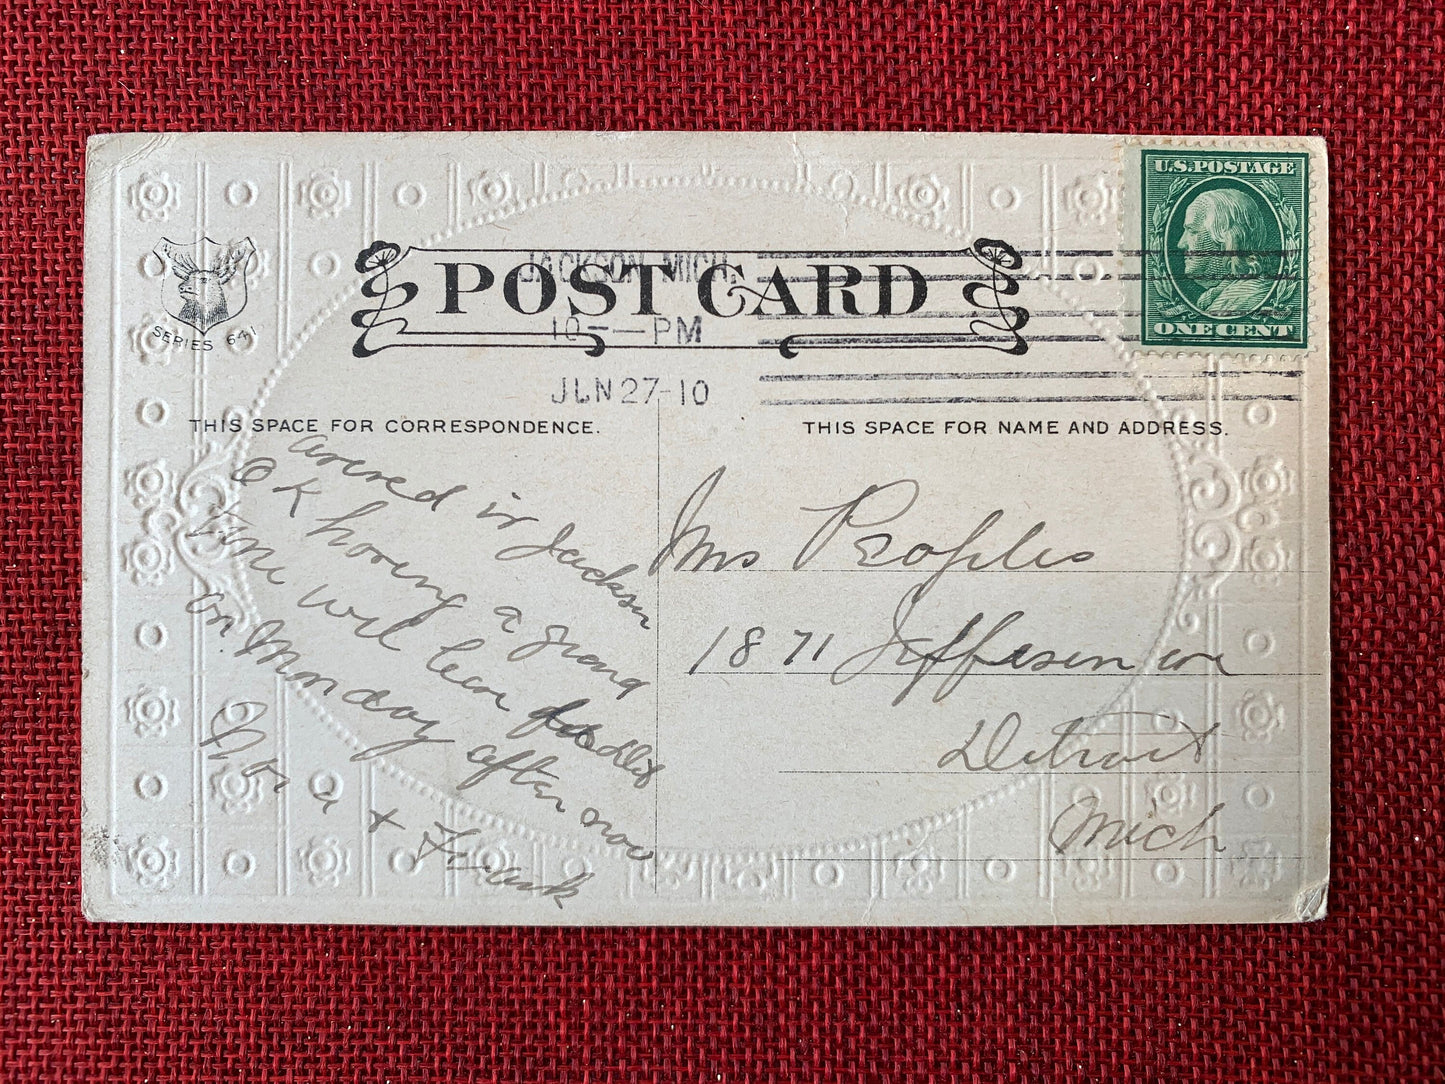 U.S. POSTAGE
ONE CENT
POST CARD
JACKSON, MICH.
10 — PM
JUN 27-10
SERIES 641
THIS SPACE FOR CORRESPONDENCE.
THIS SPACE FOR NAME AND ADDRESS.
arived in Jackson
O K having a grand
time will leave
on Monday after noo
Nora + Frank
Mrs Peoples
1871 Jefferson
Detroit
Mich